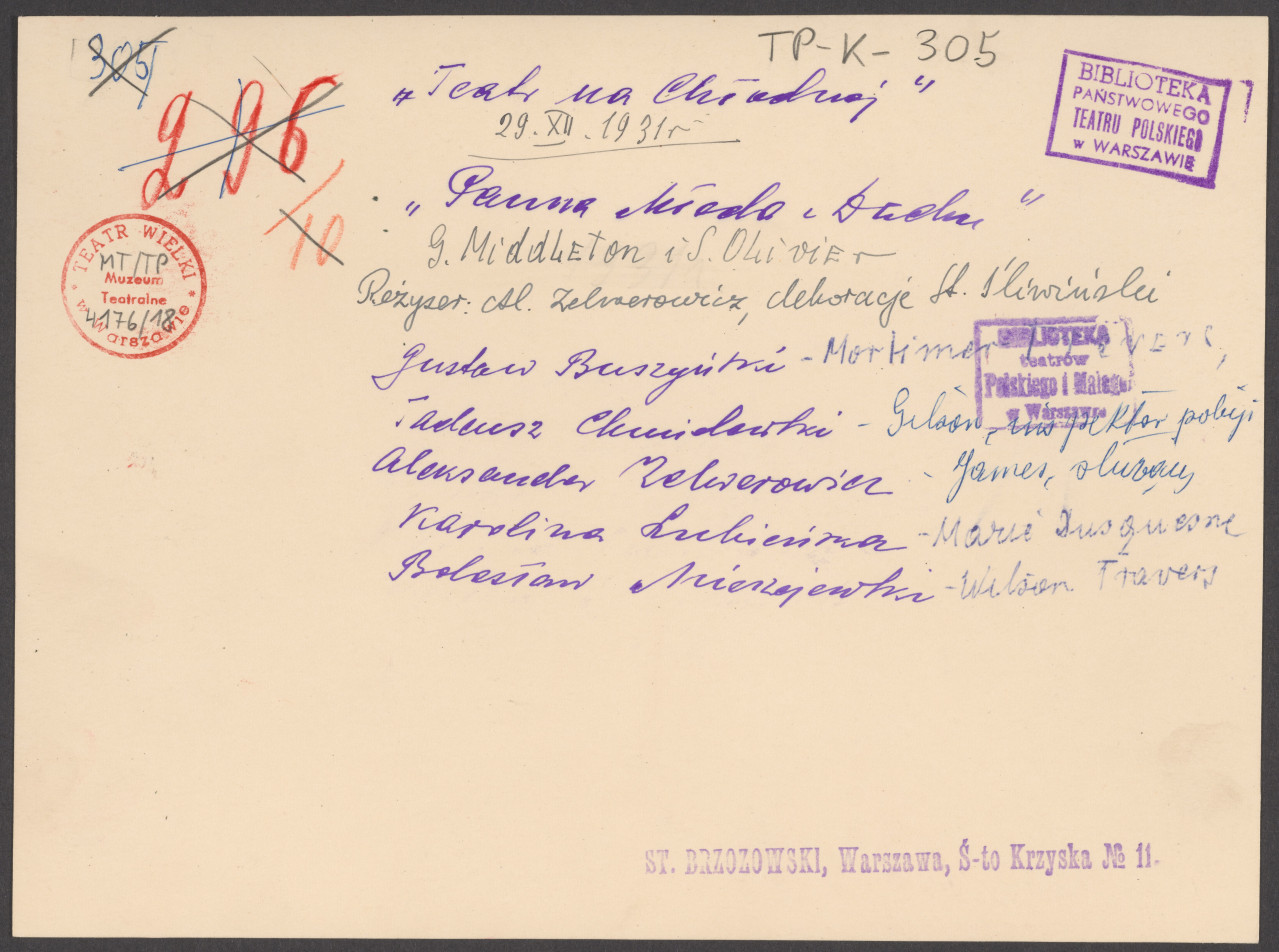 305
TP-K-305
296
/10
"Teatr na Chłodnej"
29.XII.1931r
BIBLIOTEKA
PAŃSTWOWEGO
TEATRU POLSKIEGO
w WARSZAWIE
"Panna Młoda i Duchy"
G. Middleton i S. Olivier
Reżyser: Al. Zelwerowicz, dekoracje St. Śliwiński
TEATR WIELKI
MT/TP
Muzeum
Teatralne
4176/18
w Warszawie
BIBLIOTEKA
teatrów
Polskiego i Małego
w Warszawie
Gustaw Buszyński - Mortimer
Tadeusz Chmielewski - Gilson, inspektor policji
Aleksander Zelwerowicz - James, służący
Karolina Lubieńska - Marie Dusquesne
Bolesław Mierzejewski - Wilson Travers
ST. BRZOZOWSKI, Warszawa, Ś-to Krzyska № 11.